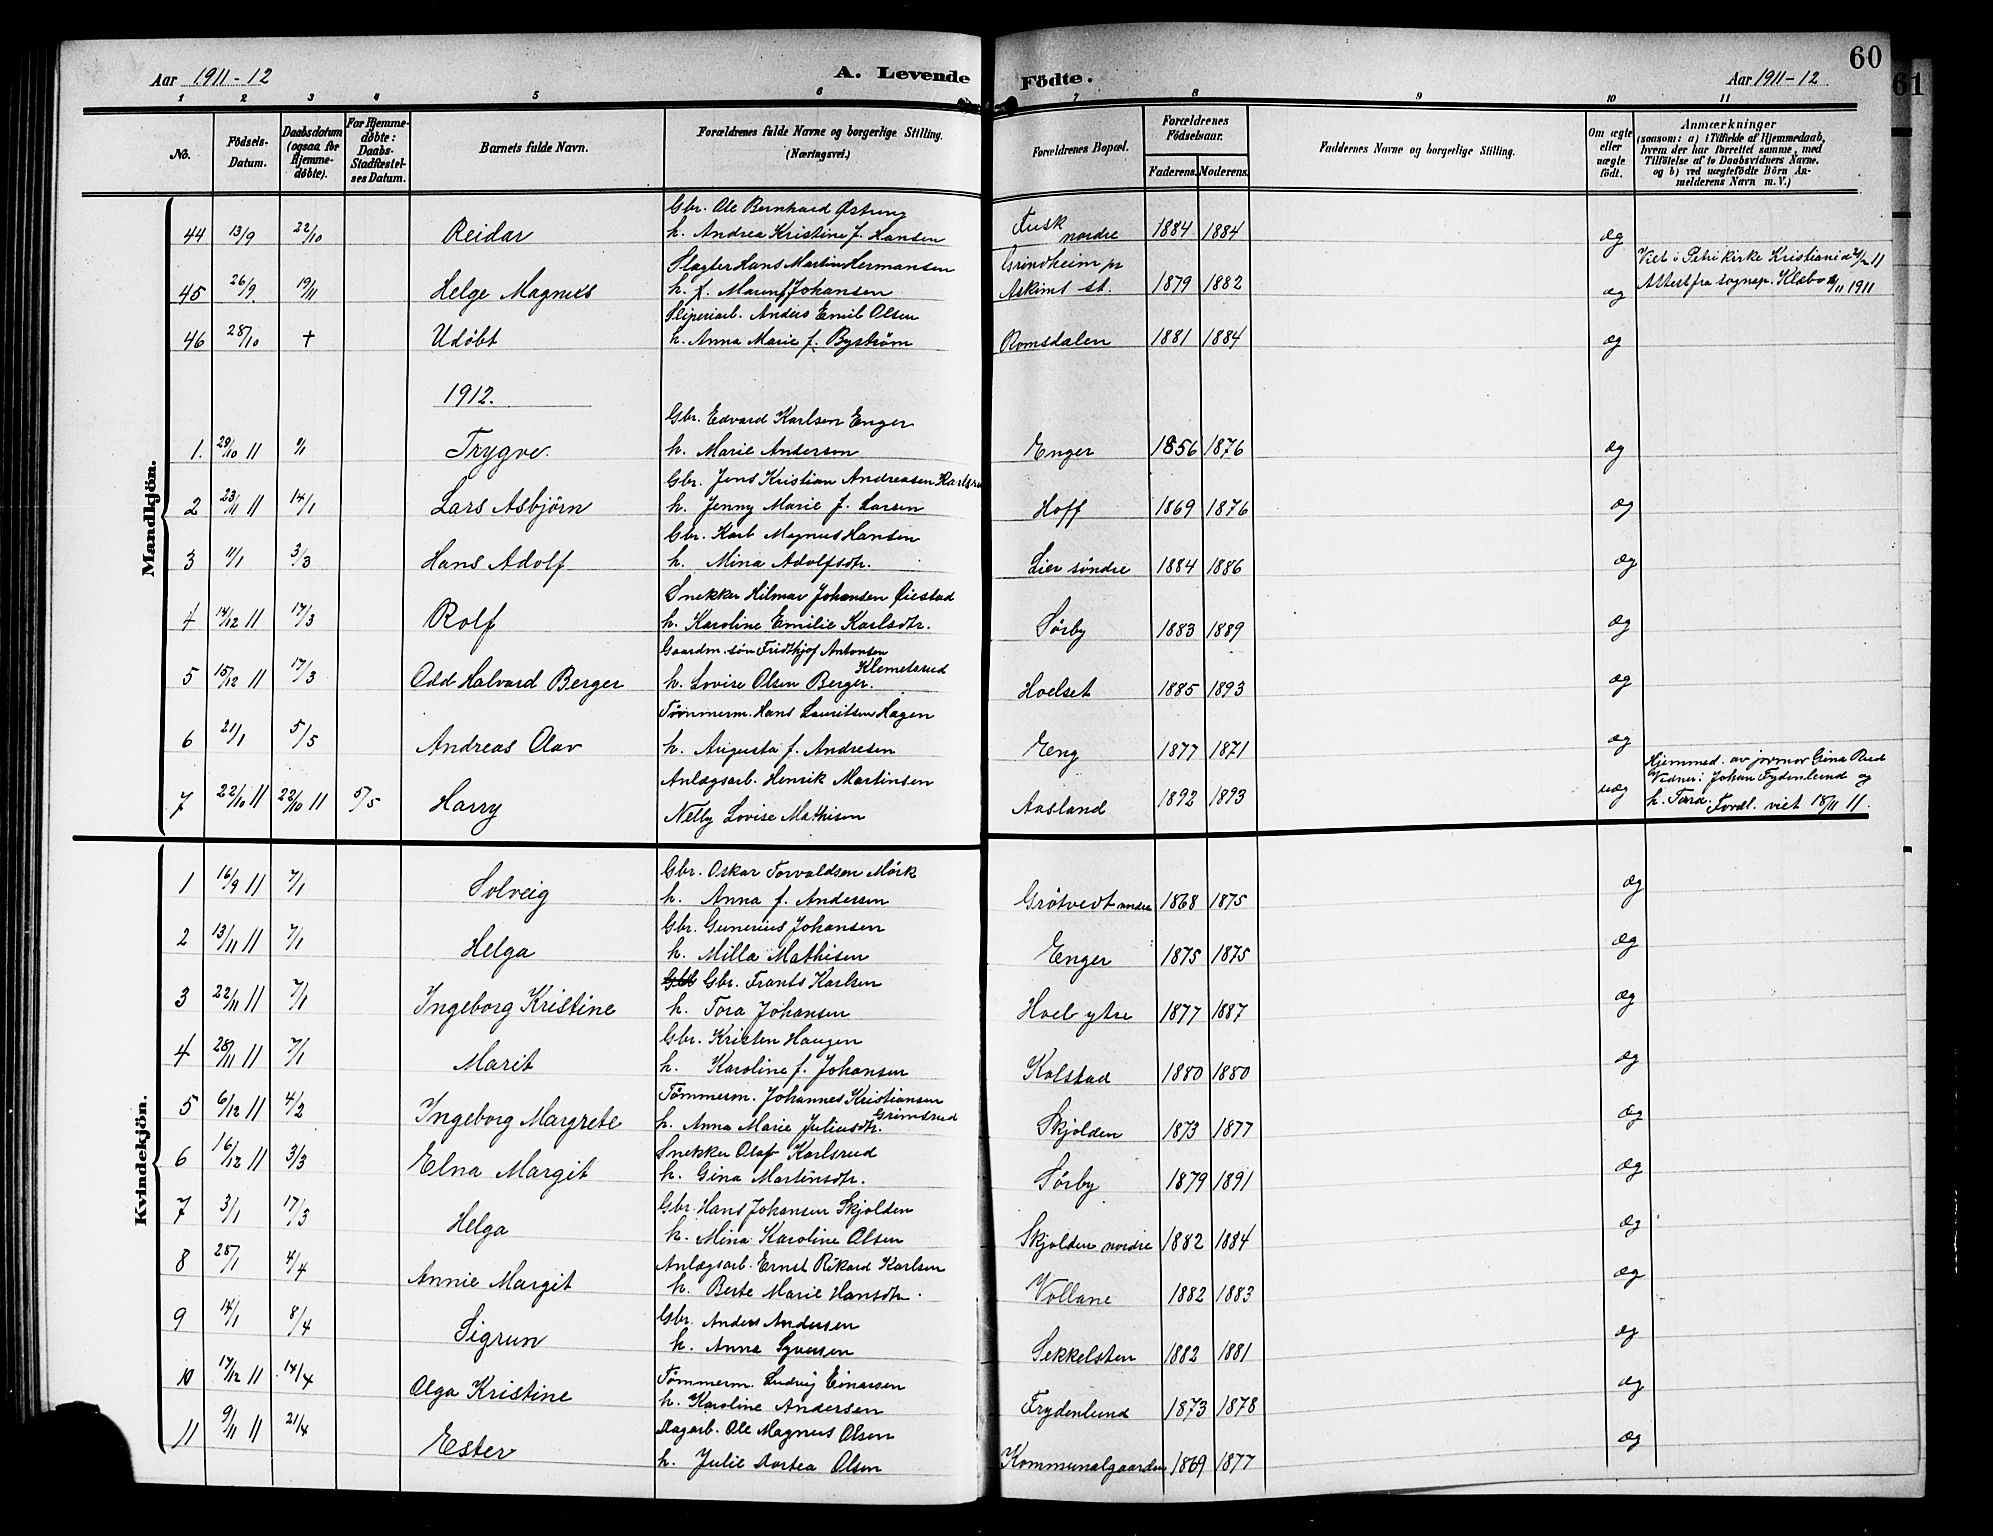 60
61
Aar 1911-12
A. Levende
Födte.
Aar 1911-12
1 2 3 4 5 6 7 8 9 10 11
No.
Födsels-Datum.
Daabsdatum (ogsaa for Hjemmedöbte).
For Hjemmedöbte: Daabs-Stadfestelses Datum.
Barnets fulde Navn.
Forældrenes fulde Navne og borgerlige Stilling. (Næringsvei.)
Forældrenes Bopæl.
Forældrenes Födselsaar.
Faderens. Moderens.
Faddernes Navne og borgerlige Stilling.
Om ægte eller uægte født.
Anmærkninger
(saasom: a) i Tilfælde af Hjemmedaab,
hvem der har forrettet samme, med
Tilföielse af to Daabsvidners Navne.
og b) ved uægtefödte Börn An-
melderens Navn m. V.)
Mandkjön.
Gbr. Ole Bernhard Østreng
44 13/9 22/10 Reidar h. Andrea Kristine f. Hansen Fusk nordre 1884 1884 æg
Slagter Hans Martin Hermansen Grindheim pr Viet i Petrikirke Kristiania
45 26/9 19/11 Helge Magnus h. f. Maren Johansen Askims st. 1879 1882 æg Attest fra sognep. Klæbo 1911
Sliperiarb. Anders Emil Olsen
46 28/10 + Udøbt h. Anna Marie f. Byström Romsdalen 1881 1884 æg
1912.
Gbr. Edvard Karlsen Enger
1. 29/10 11 Trygve. h. Marie Andersen Enger 1856 1876 æg
Gbr. Jens Kristian Andreasen Karlsrud
2 23/11 11 14/1 Lars Asbjørn h. Jenny Marie f. Larsen Hoff 1869 1876 æg
Gbr. Karl Magnus Hansen
3 11/1 3/3 Hans Adolf h. Mina Adolfsdtr. Lier søndre 1884 1886 æg
Snekker Hilmar Johansen Øiestad
4 14/12 11 17/3 Rolf h. Karoline Emilie Karlsdtr. Sørby 1883 1889 æg
Gaardm. søn Fridthjof Antonsen Klemetsrud
5 15/12 11 17/3 Odd Halvard Berger h. Lovise Olsen Berger. Hoelset 1885 1893 æg
Tømmerm. Hans Lauritsen Hagen
6 21/1 5/5 Andreas Olav h. Augusta f. Andresen Eng 1877 1871 æg
Anlægsarb. Henrik Martinsen Hjemmed. av jormor Gina Rud
Vidner: Johan Frydenlund og
7 22/10 11 22/10 11 5/5 Harry Nelly Lovise Mathisen Aasland 1892 1893 uæg h. Tora. Foræl. viet 18/11 11.
Kvindekjön.
Gbr. Oskar Torvaldsen Mörk
1 16/9 11 7/1 Solveig h. Anna f. Andersen Grøtvedt nordre 1868 1875 æg
Gbr. Gunerius Johansen
2 13/11 11 7/1 Helga h. Milla Mathisen Enger 1875 1875 æg
Gbr. Frants Karlsen
3 22/11 11 7/1 Ingeborg Kristine h. Tora Johansen Hoel ytre 1877 1887 æg
Gbr. Kristen Haugen
4 28/11 11 7/1 Marit h. Karoline f. Johansen Kolstad 1880 1880 æg
Tømmerm. Johannes Kristiansen Grimsrud
5 6/12 11 4/2 Ingeborg Margrete h. Anna Marie Juliusdtr. Skjolden 1873 1877 æg
Snekker Olaf Karlsrud
6 16/12 11 3/3 Elna Margit h. Gina Martinsdtr. Sørby 1879 1891 æg
Gbr. Hans Johansen Skjolden
7 3/1 17/3 Helga h. Mina Karoline Olsen Skjolden nordre 1882 1884 æg
Anlægsarb. Ernst Rikard Karlsen
8 28/1 4/4 Annie Margit h. Berte Marie Hansdtr. Vollane 1882 1883 æg
Gbr. Anders Andersen
9 14/1 8/4 Sigrun h. Anna Syversen Sekkelsten 1882 1881 æg
Tømmerm. Ludvig Einarsen
10 17/12 11 14/4 Olga Kristine h. Karoline Andersen Frydenlund 1873 1878 æg
Dagarb. Ole Magnus Olsen
11 9/11 11 21/4 Ester h. Julie Dortea Olsen Kommunalgaarden 1869 1877 æg